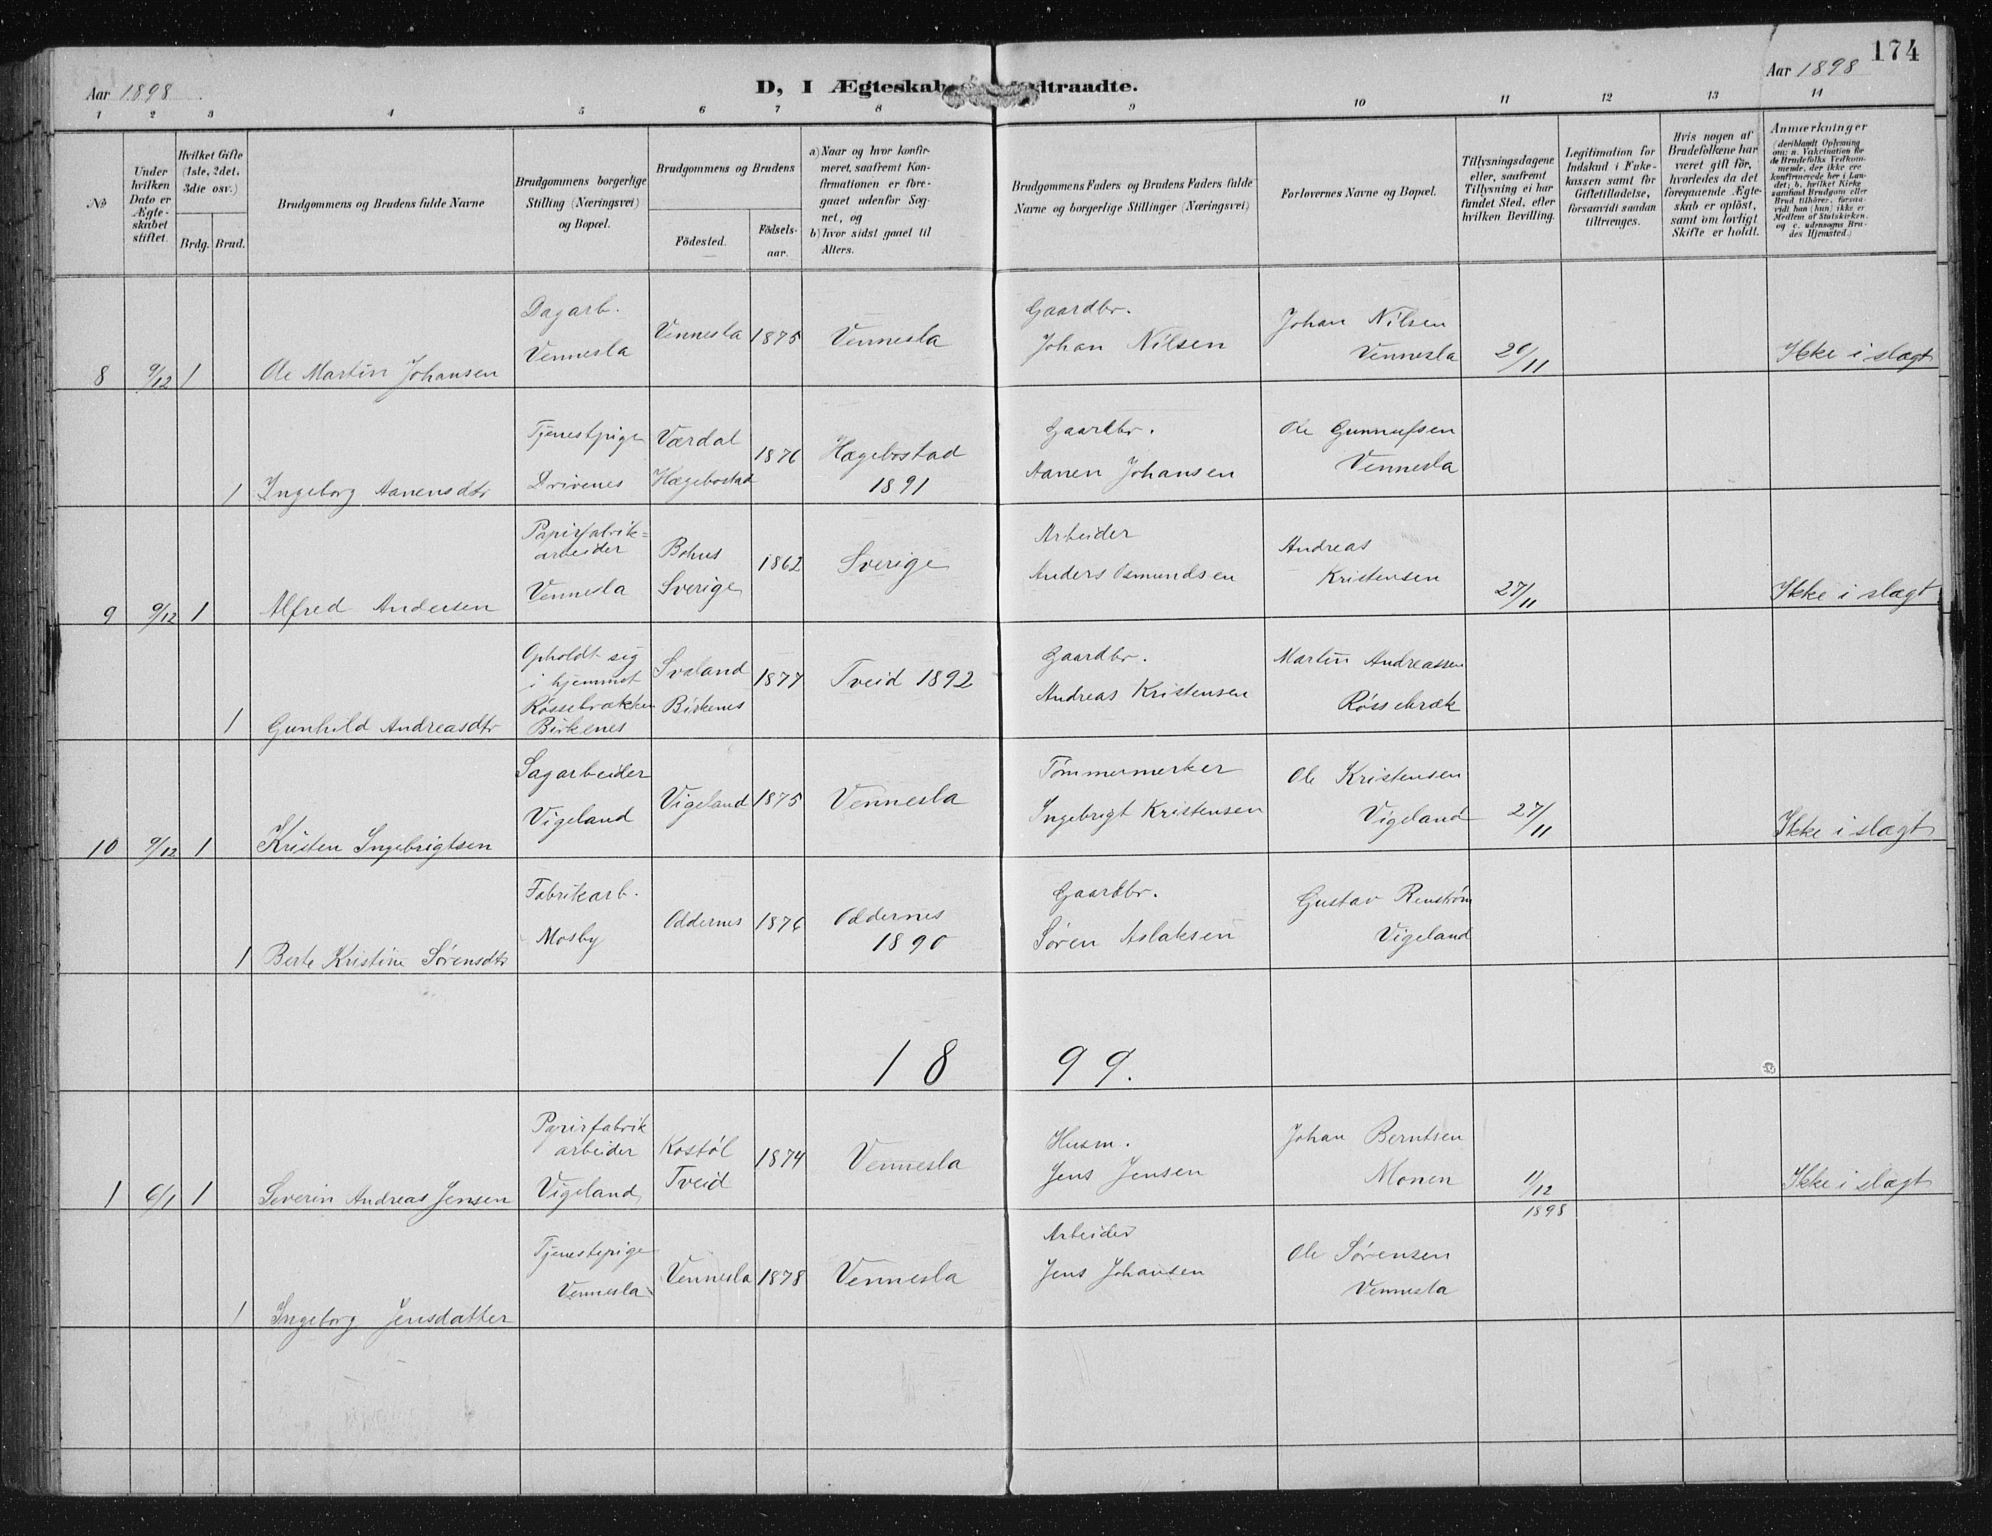 174
Aar 1898
D, I Ægteskab
dtraadte.
Aar 1898
1 2 3 4 5 6 7 8 9 10 11 12 13 14
No
Under hvilken Dato er Ægteskabet stiftet.
Hvilket Gifte (1ste, 2det, 3die osv.)
Brdg. Brud.
Brudgommens og Brudens fulde Navne
Brudgommens borgerlige Stilling (Næringsvei) og Bopæl.
Brudgommens og Brudens
Födested.
Födselsaar.
a) Naar og hvor konfirmeret, saafremt Konfirmationen er foregaaet udenfor Sognet, og
b) hvor sidst gaaet til Alters.
Brudgommens Faders og Brudens Faders fulde Navne og borgerlige Stillinger (Næringsvei)
Forlovernes Navne og Bopæl.
Tillysningsdagene eller, saafremt Tillysning ei har fundet Sted, efter hvilken Bevilling.
Legitimation for Indskud i Enkekassen samt for Giftetilladelse, forsaavidt saadan tiltrænges.
Hvis nogen af Brudefolkene har været gift før, hvorledes da det foregaaende Ægteskab er oplöst, samt om lovligt Skifte er holdt.
Anmærkninger (deriblandt Oplysning om: a. Vakcination for de Brudefolks Vedkommende, der ikke ere konfirmerede her i Landet; b. hvilket Kirkesamfund Brudgom eller Brud tilhörer, forsaavidt han (hun) ikke er Medlem af Statskirken, og c. udensogns Brudes Hjemsted.)
8 9/12 1 Ole Martin Johansen
Dagarb. Vennesla
Vennesla 1875 Vennesla
Gaardbr. Johan Nilsen
Johan Nilsen Vennesla
20/11
Ikke i slægt
1 Ingeborg Aanensdtr
Tjenestpige Drivenes
Værdal Hægebostad 1876
Hægebostad 1891
Gaardbr. Aanen Johansen
Ole Gunnufsen Vennesla
9 9/12 1 Alfred Andersen
Papirfabrik=arbeider Vennesla
Bohus Sverige 1862 Sverige
Arbeider Anders Osmundsen
Andreas Kristensen
27/11
Ikke i slægt
1 Gunhild Andreasdtr
Opholdt sig i hjemmet Røssebrækken Birkenes
Svaland Birkenes 1877 Tveid 1892
Gaardbr. Andreas Kristensen
Martin Andreassen Røssebræk
10 9/12 1 Kristen Ingebrigtsen
Sagarbeider Vigeland
Vigeland 1875 Vennesla
Tømmermerker Ingebrigt Kristensen
Ole Kristensen Vigeland
27/11
Ikke i slægt
1 Berte Kristine Sørensdtr
Fabrikarb. Mosby
Oddernes 1876 Oddernes 1890
Gaardbr. Søren Aslaksen
Gustav Renstrøm Vigeland
18 99.
1 6/1 1 Severin Andreas Jensen
Papirfabrik arbeider Vigeland
Kostøl Tveid 1874 Vennesla
Husm. Jens Jensen
Johan Berntsen Monen
11/12 1898
Ikke i slægt
1 Ingeborg Jensdatter
Tjenestepige Vennesla
Vennesla 1878 Vennesla
Arbeider Jens Johansen
Ole Sørensen Vennesla